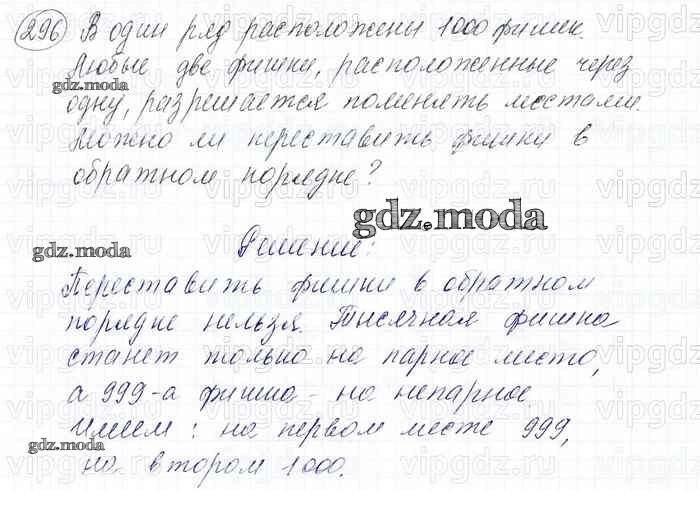 296 В один ряд расположены 1000 фишек.
Любые две фишки, расположенные через
gdz.moda
одну, разрешается поменять местами.
Можно ли переставить фишки в
обратном порядке?
gdz.moda
Решение:
gdz.moda
Переставить фишки в обратном
порядке нельзя. Тысячная фишка
станет только на парное место,
а 999-а фишка - на непарное.
Имеем: на первом месте 999,
gdz.moda
на втором 1000.
vipgdz.ru